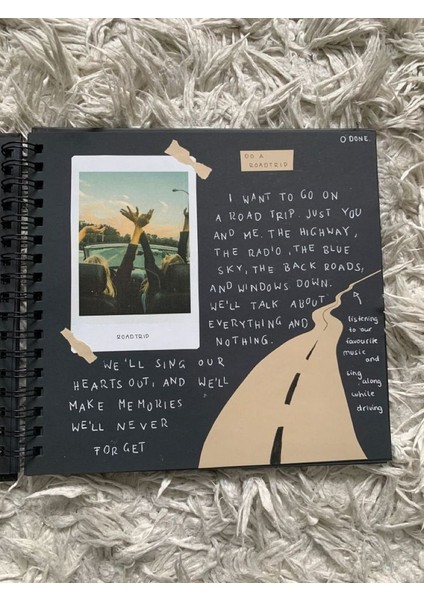 O DONE
DO A
ROADTRIP
I WANT TO GO ON
A ROAD TRIP. JUST YOU
AND ME. THE HIGHWAY,
THE RADIO, THE BLUE
SKY, THE BACK ROADS,
AND WINDOWS DOWN.
WE'LL TALK ABOUT
EVERYTHING AND
NOTHING.
ROADTRIP
WE'LL SING OUR
HEARTS OUT, AND WE'LL
MAKE MEMORIES
WE'LL NEVER
FORGET
listening
to our
favourite
music
and
sing
along
while
driving